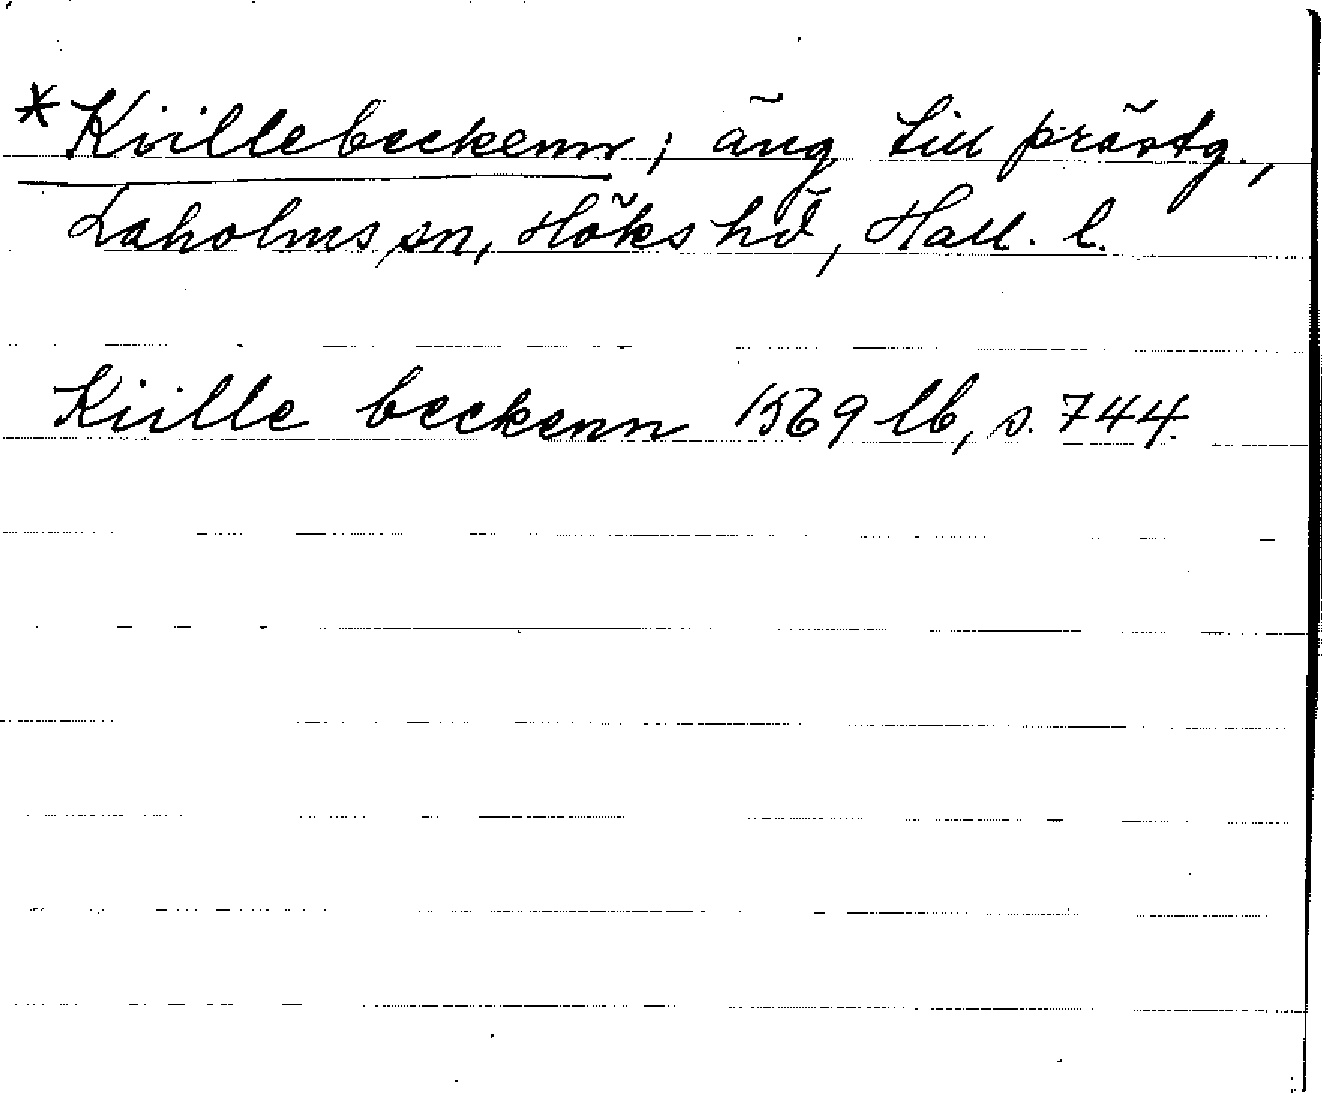 *Kiillebeckenn, äng till prästg.,
Laholms sn, Höks hd, Hall. l.
Kiille beckenn 1569 lb, s. 744.